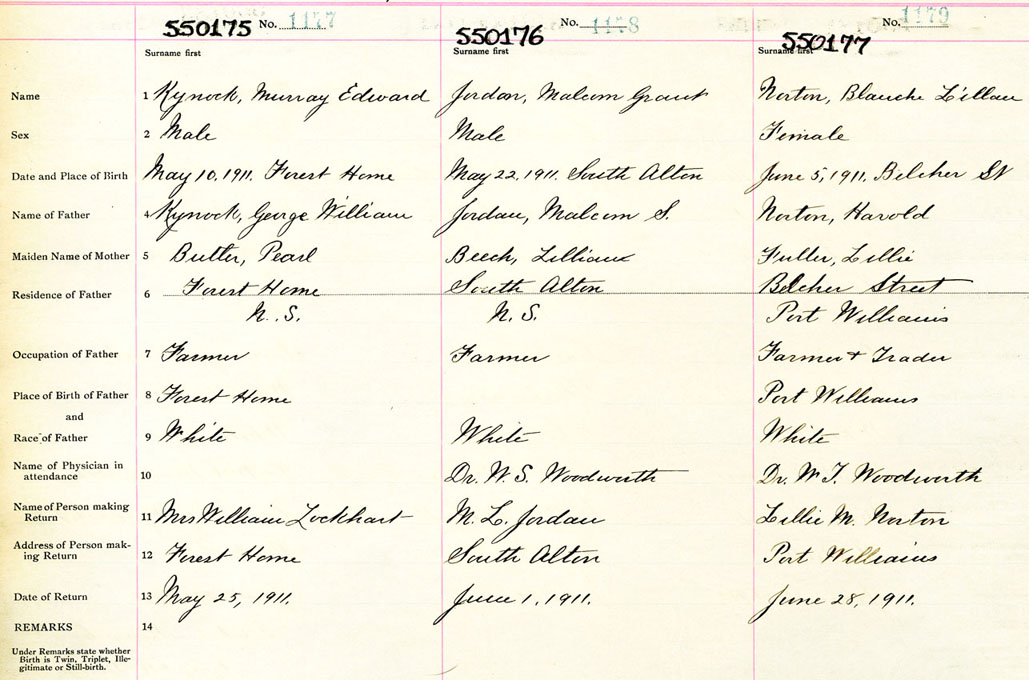 550175 No. 1177 550176 No. 1178 550177 No. 1179
Surname first Surname first Surname first
Name 1 Kynock, Murray Edward Jordan, Malcom Grant Norton, Blanche Lillian
Sex 2 Male Male Female
Date and Place of Birth May 10, 1911. Forest Home May 22, 1911. South Alton June 5, 1911. Belcher St
Name of Father 4 Kynock, George William Jordan, Malcom S. Norton, Harold
Maiden Name of Mother 5 Butler, Pearl Beech, Lillian Fuller, Lillie
Residence of Father 6 Forest Home South Alton Belcher Street
N. S. N. S. Port Williams
Occupation of Father 7 Farmer Farmer Farmer + Trader
Place of Birth of Father 8 Forest Home Port Williams
and
Race of Father 9 White White White
Name of Physician in
attendance 10 Dr. W. S. Woodworth Dr. W. T. Woodworth
Name of Person making
Return 11 Mrs William Lockhart M. L. Jordan Lillie M. Norton
Address of Person mak-
ing Return 12 Forest Home South Alton Port Williams
Date of Return 13 May 25, 1911. June 1, 1911. June 28, 1911.
REMARKS 14
Under Remarks state whether
Birth is Twin, Triplet, Ille-
gitimate or Still-birth.